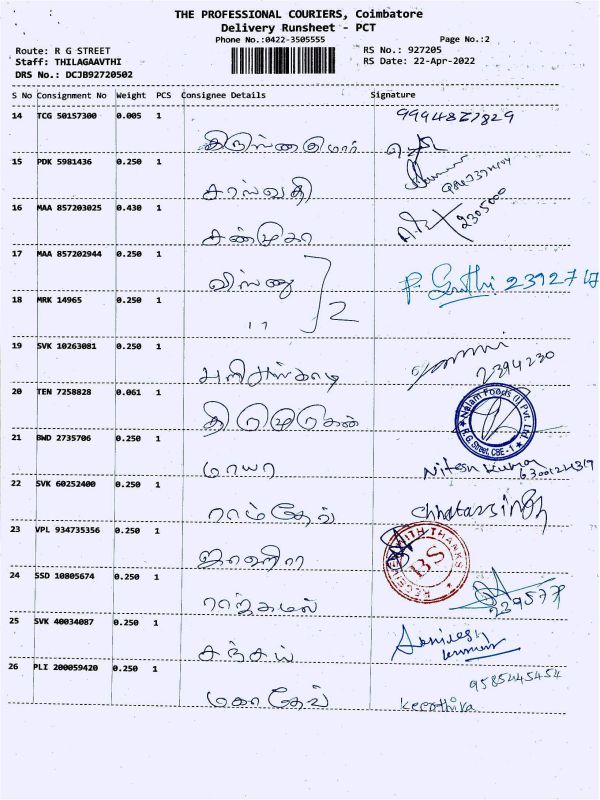 THE PROFESSIONAL COURIERS, Coimbatore
Delivery Runsheet - PCT
Phone No.:0422-3505555 Page No.:2
Route: R G STREET RS No.: 927205
Staff: THILAGAAVTHI RS Date: 22-Apr-2022
DRS No.: DCJB92720502
S No Consignment No Weight PCS Consignee Details Signature
14 TCG 50157300 0.005 1
15 PDK 5981436 0.250 1
சரஸ்வதி
16 MAA 857203025 0.430 1 2305000
சண்முகா
17 MAA 857202944 0.250 1
விஸ்ணு 2
18 MRK 14965 0.250 1
19 SVK 10263081 0.250 1
2394230
20 TEN 7258828 0.061 1
Nalam Foods (I) Pvt. Ltd.
R G Street, CBE - 1
21 BWD 2735706 0.250 1
மாயா Nitesh Kumar
22 SVK 60252400 0.250 1
ராம்தேவ் Chhatarsingh
23 VPL 934735356 0.250 1
RECEIVED WITH THANKS
BS
24 SSD 10805674 0.250 1
ராஜ்கமல்
25 SVK 40034087 0.250 1
சஞ்சய்
26 PLI 200059420 0.250 1 9585445454
மகாதேவ் Keerthiva